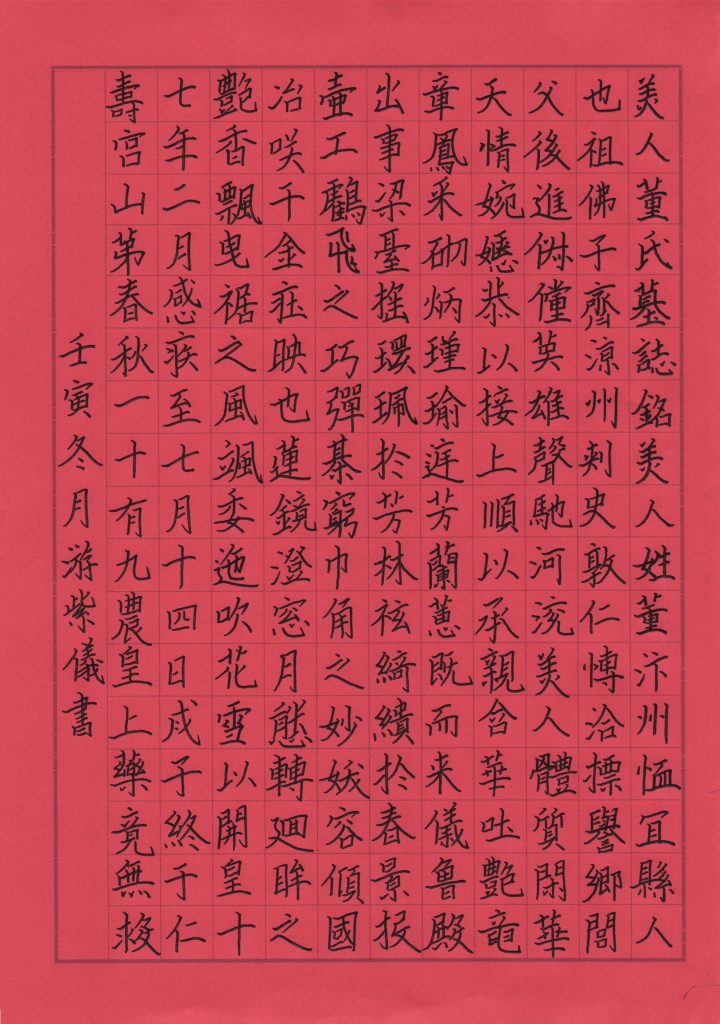 美人董氏墓誌銘美人姓董汴州恤冝縣人
也祖佛子齊涼州刺史敦仁博洽摽譽鄉閭
父後進俶儻英雄聲馳河兗美人體質閑華
天情婉嫕恭以接上順以承親含華吐艷竜
章鳳采砌炳瑾瑜庭芳蘭蕙既而来儀魯殿
出事梁臺搖環珮於芳林袨綺繢於春景投
壷工鶴飛之巧彈棊窮巾角之妙妖容傾國
冶咲千金莊映也蓮鏡澄窓月態轉廻眸之
艷香飄曳裾之風颯委迤吹花雪以開皇十
七年二月感疾至七月十四日戍子終于仁
壽宮山第春秋一十有九農皇上藥竟無救
壬寅冬月游紫儀書